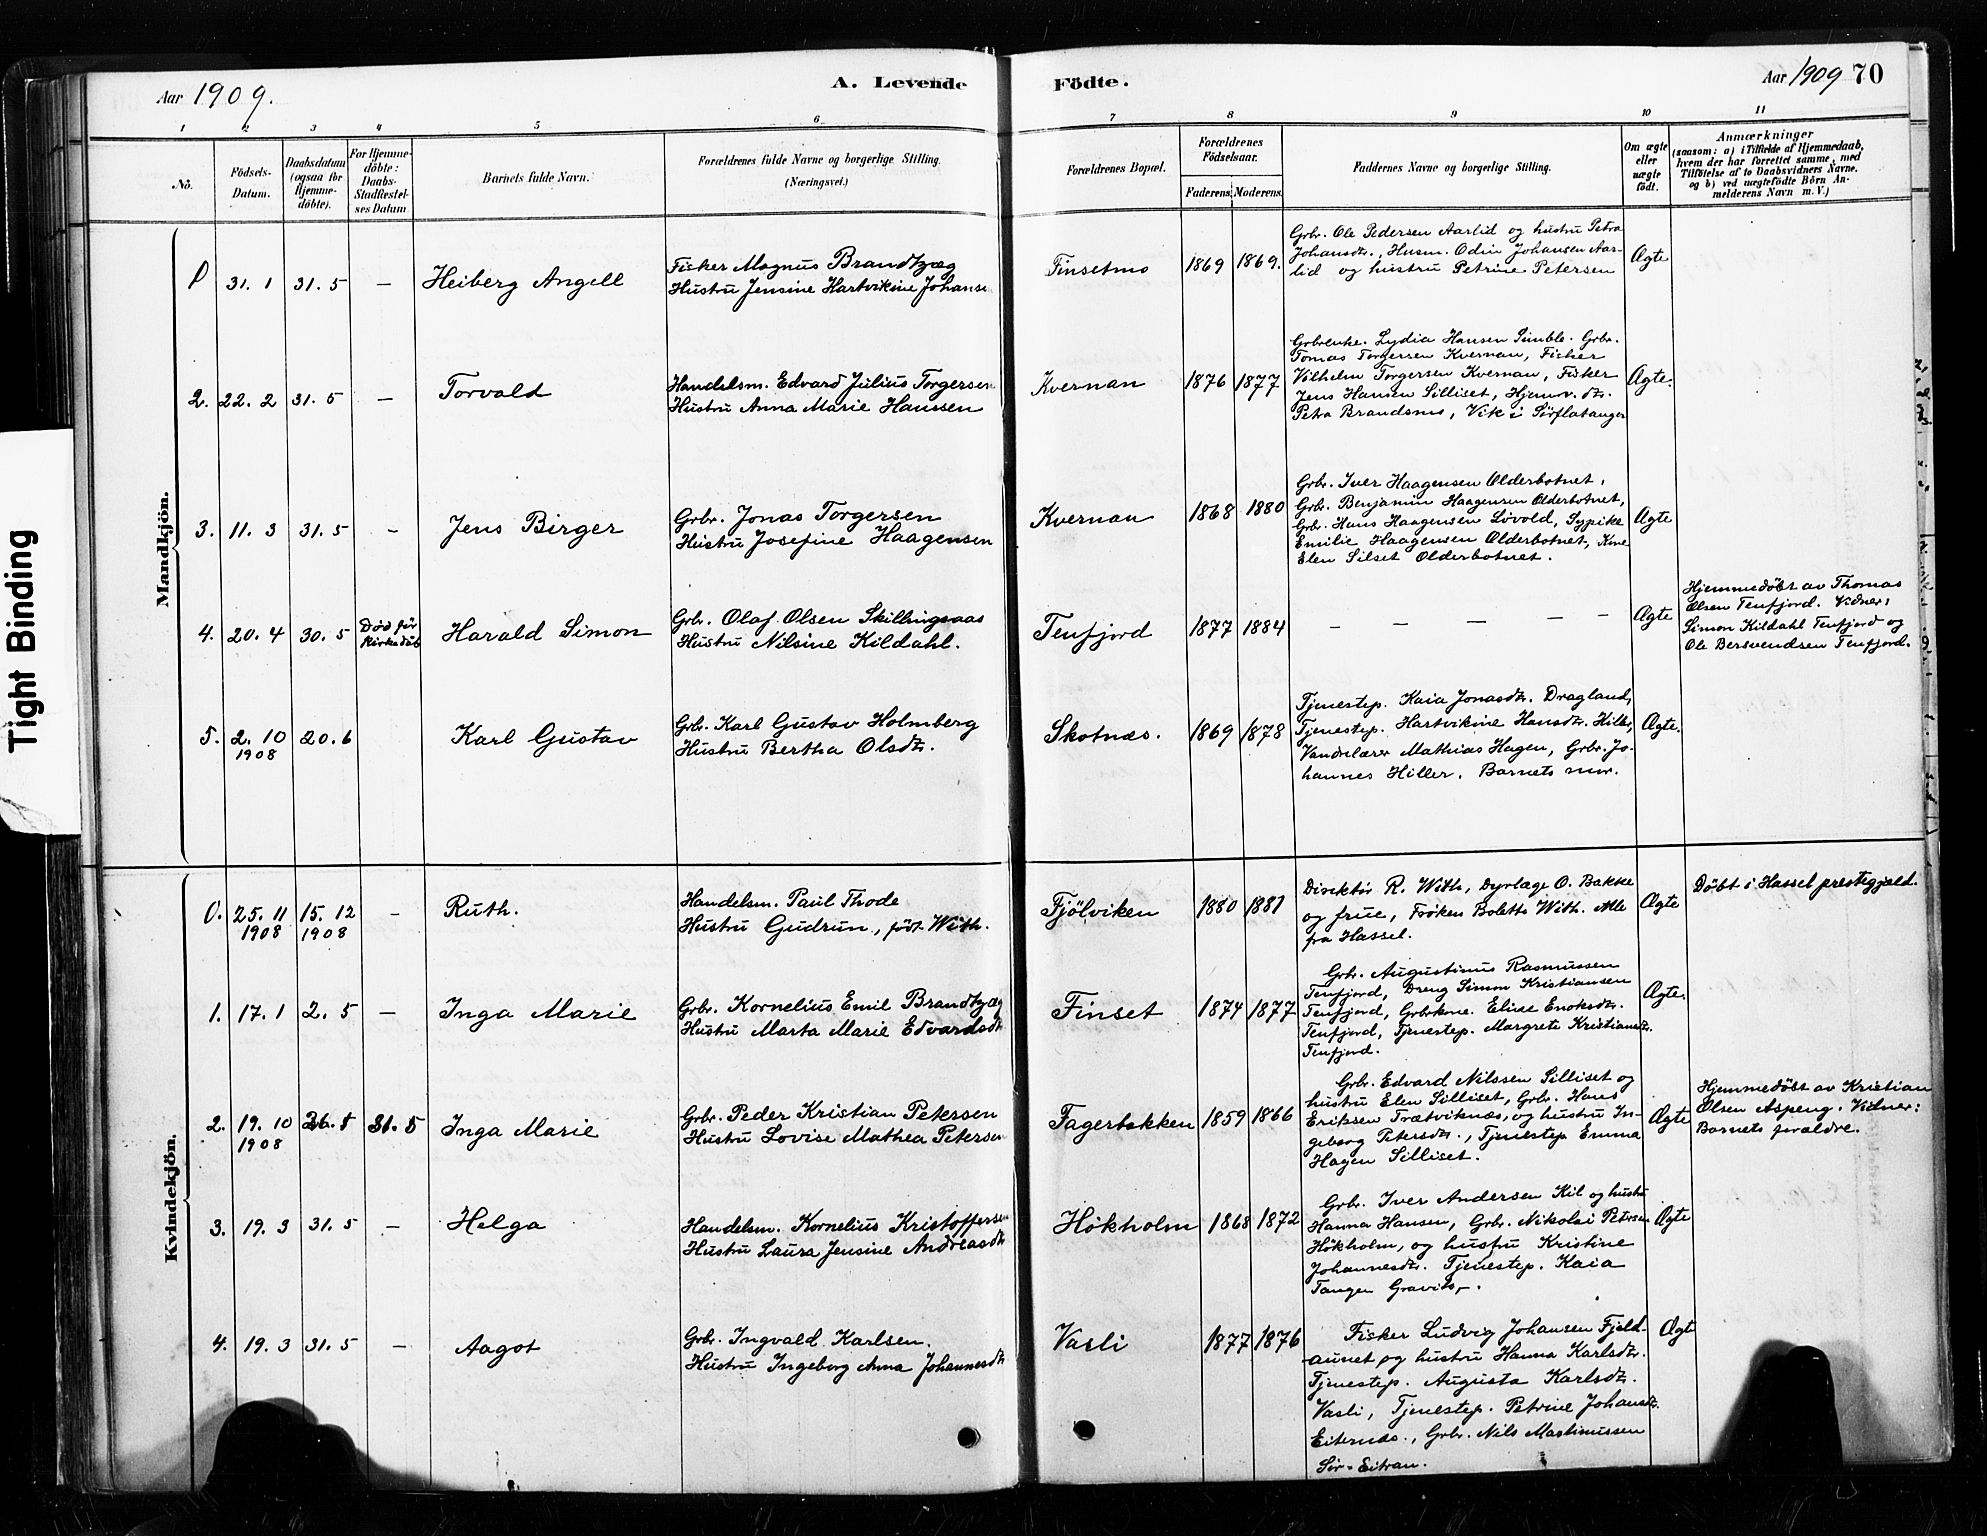 Aar 1909.
A. Levende
Födte.
Aar 1909 70
1 2 3 4 5 6 7 8 9 10 11
No.
Födsels-
Datum.
Daabsdatum
(ogsaa for
Hjemme-
döbte).
For Hjemme-
döbte:
Daabs-
Stadfæstel-
ses Datum
Barnets fulde Navn.
Forældrenes fulde Navne og borgerlige Stilling.
(Næringsvei.)
Forældrenes Bopæl.
Forældrenes
Födselsaar.
Faderens. Moderens.
Faddernes Navne og borgerlige Stilling.
Om ægte
eller
uægte
födt.
Anmærkninger
(saasom: a) i Tilfælde af Hjemmedaab,
hvem der har forrettet samme, med
Tilföielse af to Daabsvidners Navne.
og b) ved uægtefödte Börn An-
melderens Navn m. V.)
Tight Binding
Mandkjön.
31. 1 31. 5 — Heiberg Angell
Fisker Magnus Brandtzæg
Hustru Jensine Hartvikine Johans
Finsetmo 1869 1869.
Grbr. Ole Pedersen Aarlid og hustru Petra
Johansdtr., Husm. Odin Johansen Aar-
lid og hustru Petrine Petersen
Ægte
2. 22. 2 31. 5 — Torvald
Handelsm. Edvard Julius Torgersen
Hustru Anna Marie Hanssen
Kvernan 1876 1877
Grbrenke. Lydia Hansen Simble. Grbr.
Tomas Torgersen Kvernan, Fisker
Vilhelm Torgersen Kvernan, Fisker
Jens Hansen Silliset, Hjemv. dtr.
Petra Brandsmo, Vik i Sörflatanger
Ægte.
3. 11. 3 31. 5 - Jens Birger
Grbr. Jonas Torgersen
Hustru Josefine Haagensen
Kvernan 1868 1880
Grbr. Iver Haagensen Olderbotnet,
Grbr. Benjamin Haagensen Olderbotnet,
Grbr. Hans Haagensen Lövold, Sypike
Emilie Haagensen Olderbotnet, Kone
Elen Silset Olderbotnet.
Ægte
4. 20. 4 30. 5 Död för
Kirkedåb
Harald Simon
Grbr. Olaf Olsen Skillingsaas
Hustru Nilsine Kildahl.
Tenfjord 1877 1884 — — — — —
Ægte
Hjemmedöbt av Thomas
Olsen Tenfjord. Vidner:
Simon Kildahl Tenfjord og
Ole Bersvendsen Tenfjord.
5. 2. 10 20. 6
1908
Karl Gustav
Grbr. Karl Gustav Holmberg
Hustru Bertha Olsdtr.
Skotnæs. 1869 1878
Tjenestep. Kaia Jonasdtr. Dragland,
Tjenestep. Hartvikine Hansdtr. Hiller,
Vandrelærer Mathias Hagen, Grbr. Jo-
hannes Hiller. Barnets mor.
Ægte.
Kvindekjön.
0. 25. 11 15. 12 -
1908 1908
Ruth.
Handelsm. Paul Thode
Hustru Gudrun, födt With.
Fjölviken 1880 1881
Direktör R. With, Dyrlæge O. Bakke
og frue, Fröken Bolette With. Alle
fra Hassel.
Ægte
Döbt i Hassel prestegjeld.
1. 17. 1 2. 5 — Inga Marie
Grbr. Kornelius Emil Brandtzæg
Hustru Marta Marie Edvardsdtr
Finset 1874 1877
Grbr. Augustinus Rasmussen
Tenfjord, Dreng Simon Kristiansen
Tenfjord, Grbrkone. Elise Enoksdtr.
Tenfjord, Tjenestep. Margrete Kristiansdtr.
Tenfjord.
Ægte.
2. 19. 10 31. 5
1908
Inga Marie
Grbr. Peder Kristian Petersen
Hustru Lovise Mathea Petersen
Fagerbakken 1859 1866
Grbr. Edvard Nilssen Silliset og
hustru Elen Silliset, Grbr. Hans
Eriksen Trætviknæs, og hustru In-
geborg Petersdtr., Tjenestep Emma
Hagen Silliset.
Ægte
Hjemmedöbt av Kristian
Olsen Aspeng. Vidner:
Barnets forældre.
3. 19. 3 31. 5 - Helga
Handelsm. Kornelius Kristoffersen
Hustru Laura Jensine Andreasdtr
Hökholm 1868 1872
Grbr. Iver Andersen Kil og hustru
Hanna Hansen, Grbr. Nikolai Petersen
Hökholm, og hustru Kristine
Johannesdtr. Tjenestep. Kaia
Tangen
Ægte
4. 19. 3 31. 5 — Aagot
Grbr. Ingvald Karlsen.
Hustru Ingeborg Anna Johannesdtr
Vasli 1877 1876
Fisker Ludvig Johansen Fjeld-
aunet og hustru Hanna Karlsdtr.
Tjenestep. Augusta Karlsdtr.
Vasli, Tjenestep. Petrine Johansdtr.
Eiternæs., Grbr. Nils Martinussen
Sör-Eitran.
Ægte